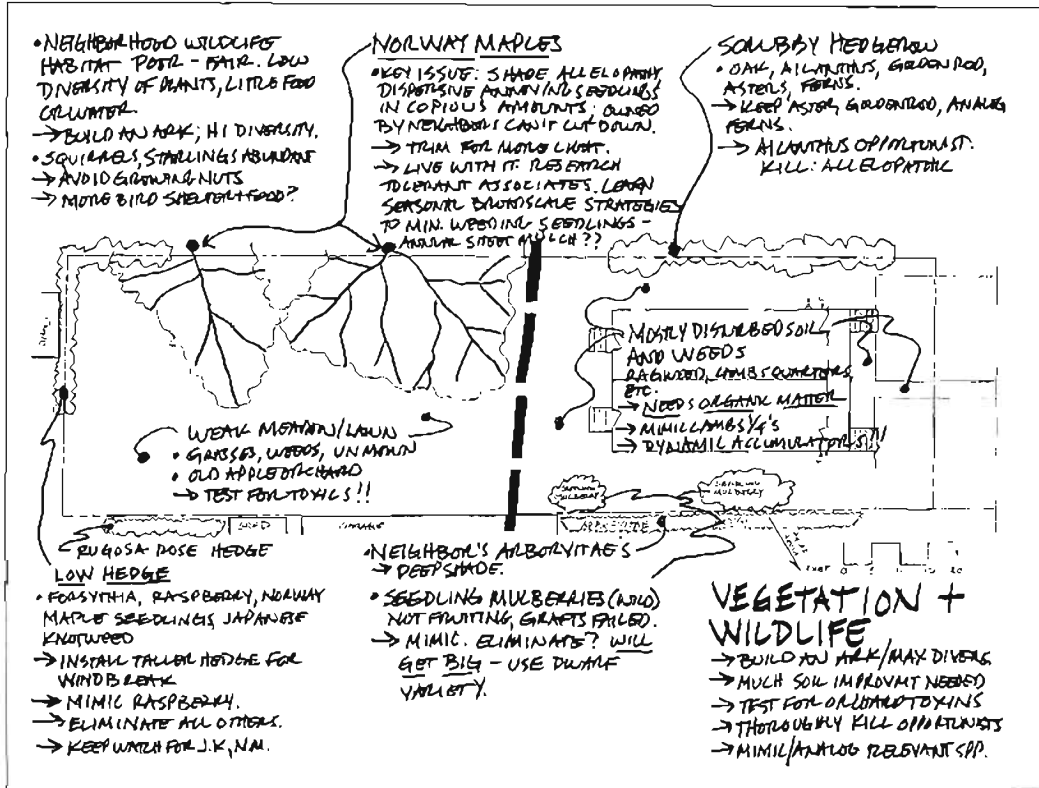 • NEIGHBORHOOD WILDLIFE
HABITAT POOR - FAIR. LOW
DIVERSITY OF PLANTS, LITTLE FOOD
OR WATER.
→ BUILD AN ARK; HI DIVERSITY.
• SQUIRRELS, STARLINGS ABUNDANT
→ AVOID GROWING NUTS
→ MORE BIRD SHELTER + FOOD?
NORWAY MAPLES
• KEY ISSUE: SHADE, ALLELOPATHY
DISPERSIVE ANNOYING SEEDLINGS
IN COPIOUS AMOUNTS; OWNED
BY NEIGHBORS CAN'T CUT DOWN.
→ TRIM FOR MORE LIGHT.
→ LIVE WITH IT: RESEARCH
TOLERANT ASSOCIATES. LEARN
SEASONAL BROADSCALE STRATEGIES
TO MIN. WEEDING SEEDLINGS -
ANNUAL SHEET MULCH??
SCRUBBY HEDGEROW
• OAK, AILANTHUS, GOLDENROD,
ASTERS, FERNS.
→ KEEP ASTER, GOLDENROD, ANALOG
FERNS.
→ AILANTHUS OPPORTUNIST.
KILL: ALLELOPATHIC
MOSTLY DISTURBED SOIL
AND WEEDS
RAGWEED, LAMBSQUARTERS
ETC.
→ NEEDS ORGANIC MATTER
→ MIMIC LAMBS 1/4'S
→ DYNAMIC ACCUMULATORS!!
WEAK MEADOW/LAWN
• GRASSES, WEEDS, UNMOWN
• OLD APPLE ORCHARD
→ TEST FOR TOXICS!!
SHED
SEEDLING
MULBERRY
ARBORVITAE
RUGOSA ROSE HEDGE
LOW HEDGE
• FORSYTHIA, RASPBERRY, NORWAY
MAPLE SEEDLINGS, JAPANESE
KNOTWEED
→ INSTALL TALLER HEDGE FOR
WINDBREAK
→ MIMIC RASPBERRY.
→ ELIMINATE ALL OTHERS.
→ KEEP WATCH FOR J.K, N.M.
• NEIGHBOR'S ARBORVITAES
→ DEEP SHADE.
• SEEDLING MULBERRIES (WILD)
NOT FRUITING, GRAFTS FAILED.
→ MIMIC. ELIMINATE? WILL
GET BIG - USE DWARF
VARIETY.
VEGETATION +
WILDLIFE
→ BUILD AN ARK/MAX DIVERS.
→ MUCH SOIL IMPROVMT NEEDED
→ TEST FOR ORCHARD TOXINS
→ THOROUGHLY KILL OPPORTUNISTS
→ MIMIC/ANALOG RELEVANT SPP.